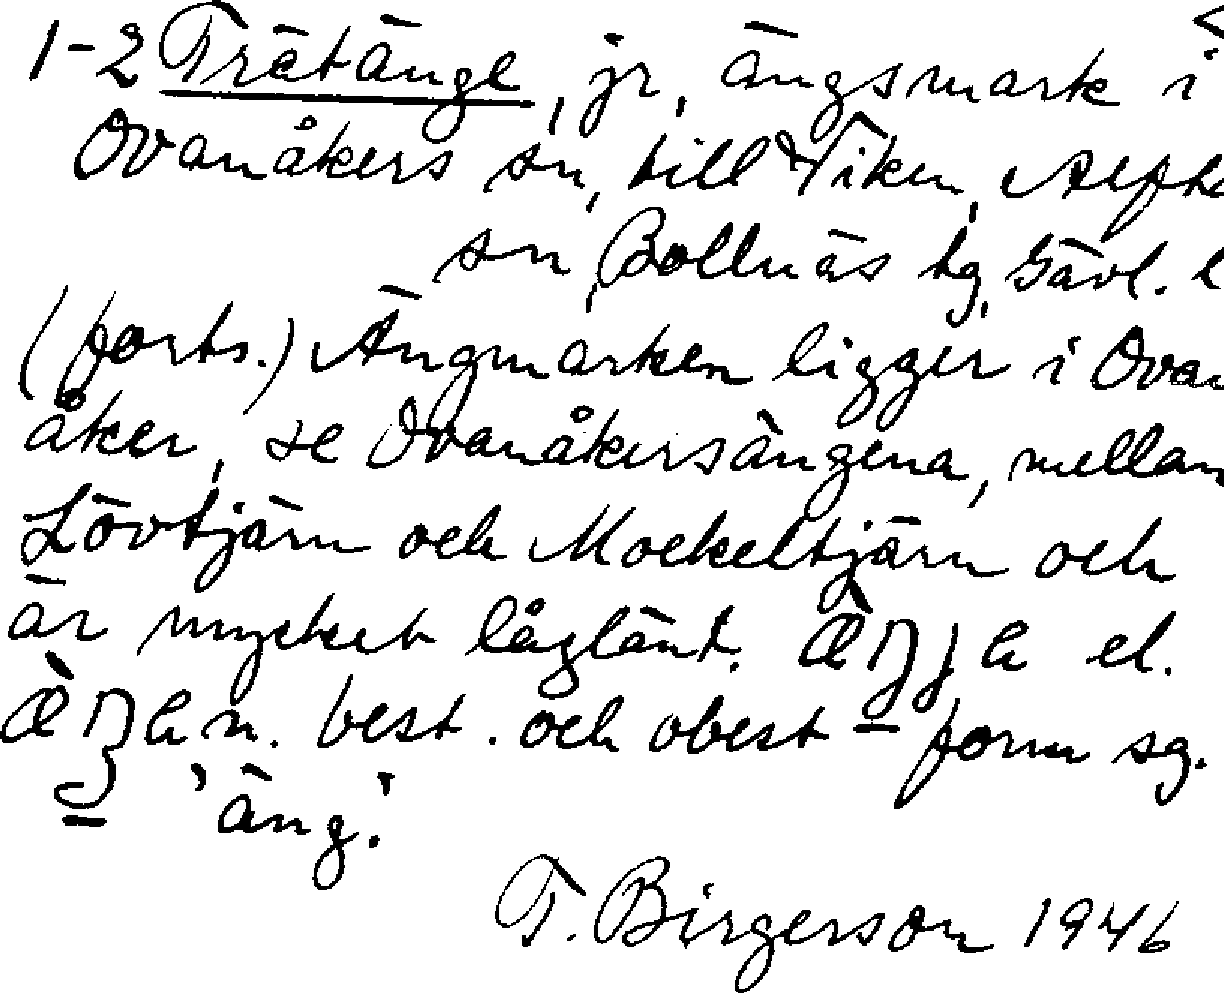 1-2 Trätänge, jr, ängsmark i
Ovanåkers sn, till Viken, Alfta
sn, Bollnäs tg, Gävl. l
(forts.) Ängmarken ligger i Ovan
åker, se Ovanåkersängena, mellan
Lövtjärn och Mockeltjärn och
är mycket låglänt. el.
n. best. och obest form sg.
'äng'.
T. Birgerson 1946